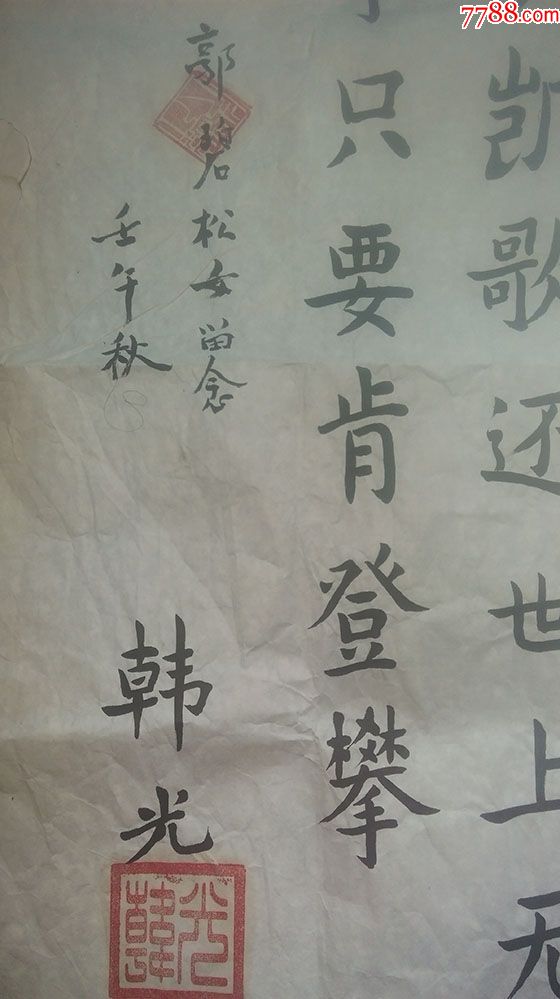 7788.com
凯歌还世上无
只要肯登攀
郭碧松女留念
壬午秋
韩光
韓光